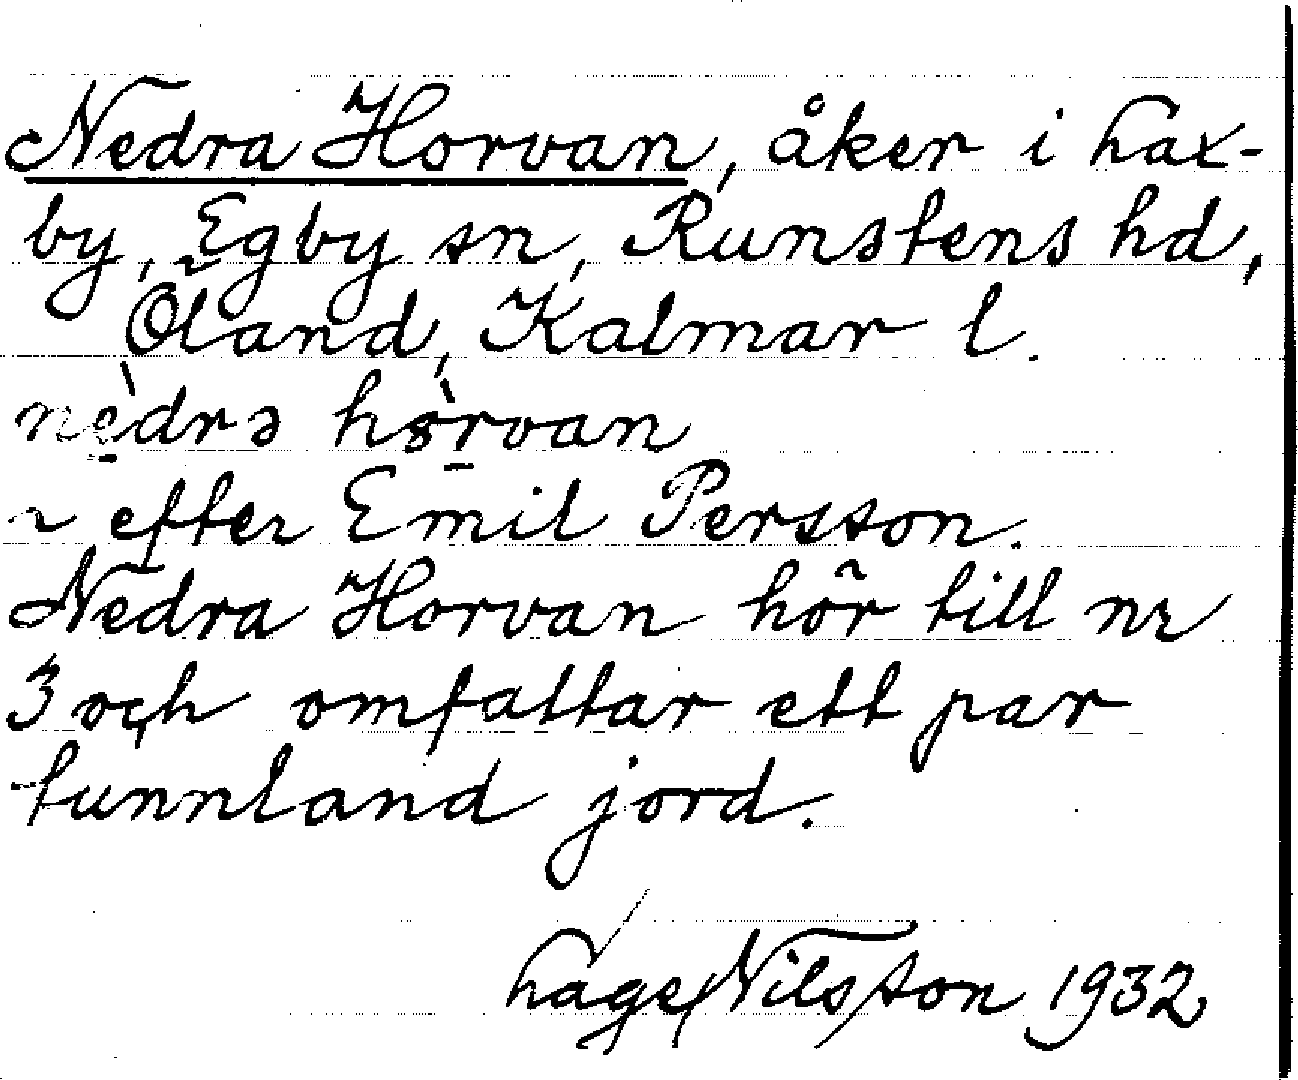 Nedra Horvan, åker i Lax-
by, Egby sn, Runstens hd,
Öland, Kalmar l.
nèdrə hòrvan
~ efter Emil Persson.
Nedra Horvan hör till nr
3 och omfattar ett par
tunnland jord.
Lage Nilsson 1932